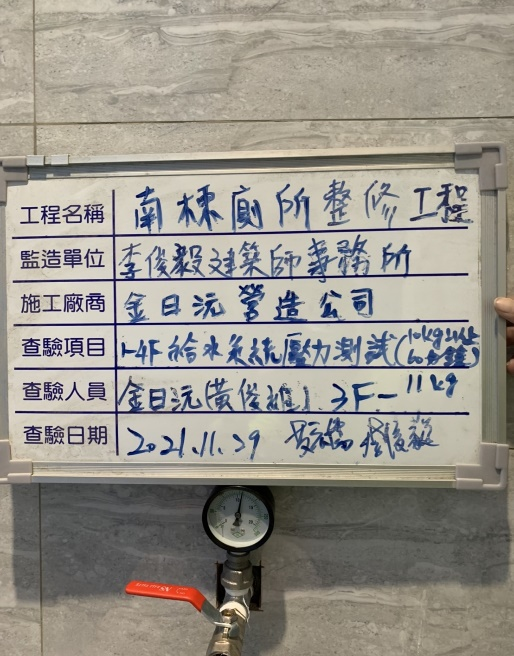 工程名稱 南棟廁所整修工程
監造單位 李俊毅建築師事務所
施工廠商 金日沅營造公司
查驗項目 1-4F給水系統壓力測試(10kg以上60分鐘)
查驗人員 金日沅(黃俊雄). 3F- 11kg
查驗日期 2021.11.29